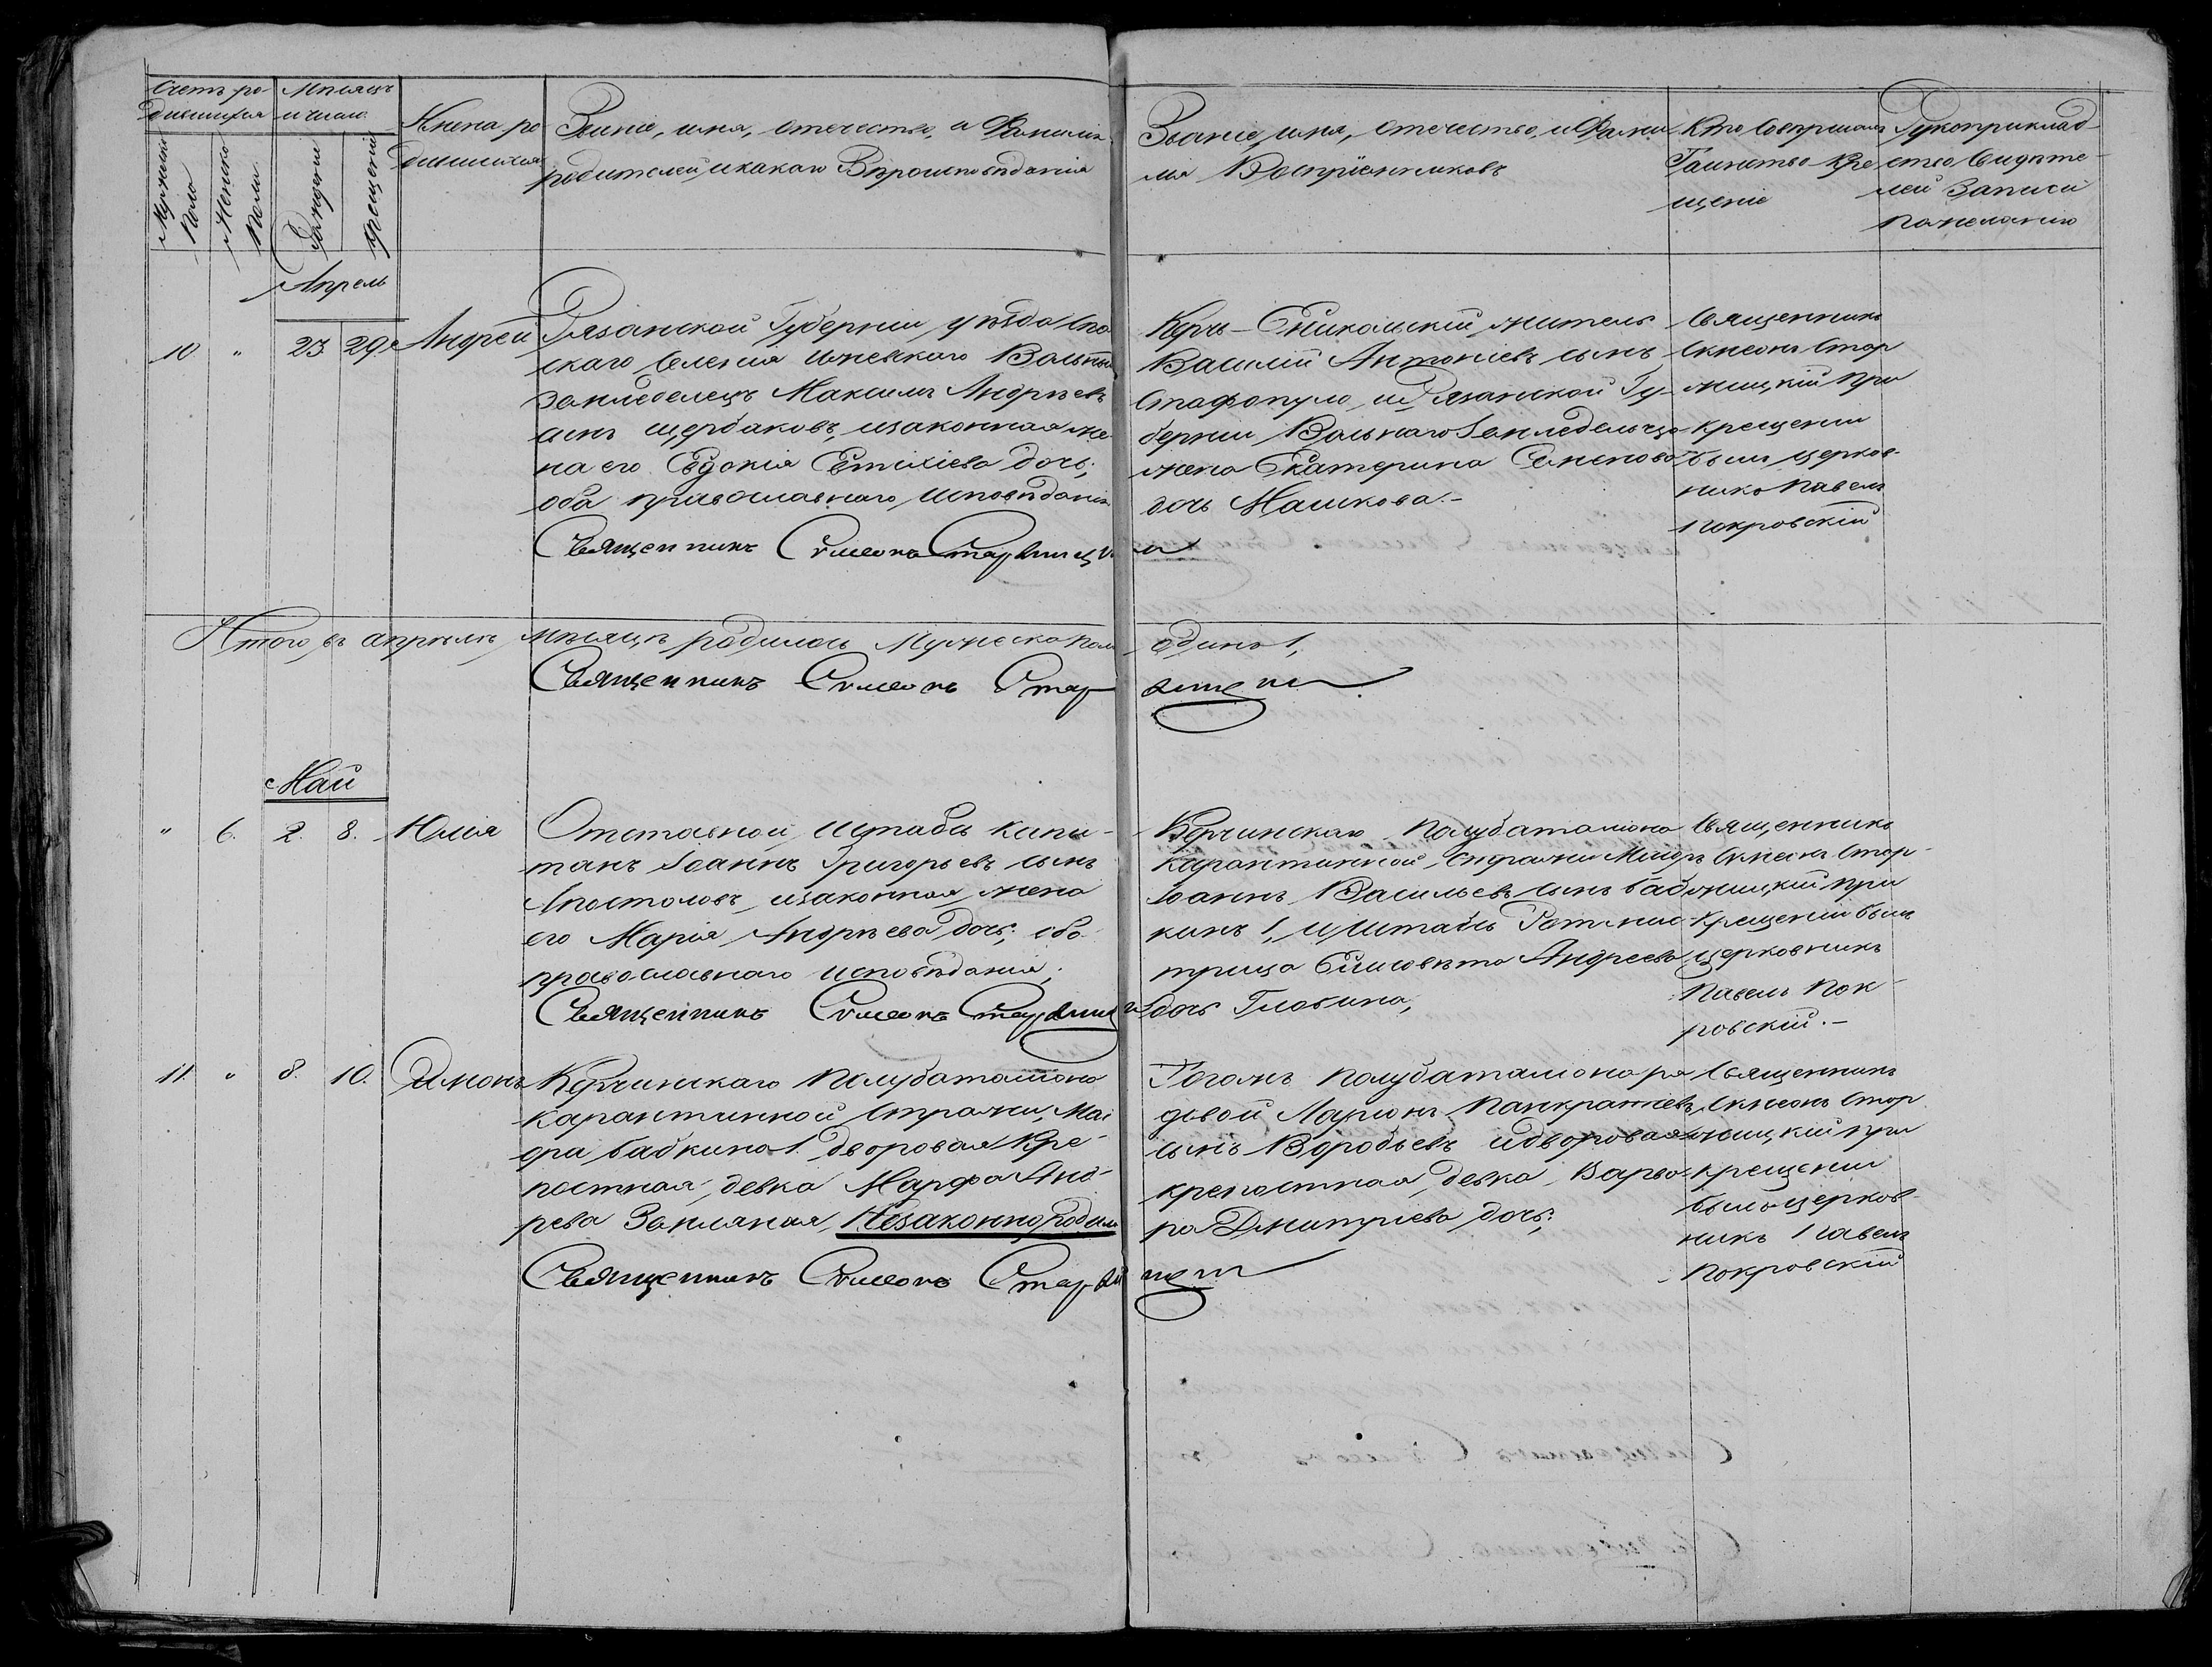 Счетъ ро-
дившихся
Мѣсяцъ
и число
Мужеска
Пола
Женска
Пола
Рожденія
Крещенія
Имена ро
дившихся
Званіе, имя, отечество, и Фамилія
родителей, и какаго Вѣроисповѣданія
Званіе, имя, отечество, и Фами
лія Воспріемниковъ
Кто совершалъ
Таинство Кре
щеніе
Рукоприклад-
ство Свидѣте-
лей Записи
по желанію
Апрель
10 " 23 29 Андрей
Рязанской Губерніи уѣзда Спа
скаго Селенія Ижевскаго Вольный
Земледелецъ Максимъ Андреевъ
сынъ Щербаковъ, изаконная же-
на его Евдокія Евтихіева дочь;
оба православнаго исповѣданія
Керчь-Еникольскій житель
Василій Антоніевъ сынъ
Стафопуло, и Рязанской Гу-
берніи Вольнаго Земледельца
жена Екатерина Семенова
дочь Машкова.-
Священникъ
Симеонъ Стар
жицкій при
крещеніи
былъ церков-
никъ Павелъ
Покровскій
Священникъ Симеонъ Старжицкій
Итого въ апрѣлѣ мѣсяцѣ родилось Мужеска пола одинъ 1,
Священникъ Симеонъ Старжицкій
Май
" 6. 2. 8. Юлія
Отставной Штабсъ Капи-
танъ Іоаннъ Григорьевъ сынъ
Апостоловъ, изаконная жена
его Марія Андреева дочь; оба
православнаго исповѣданія;
Священникъ Симеонъ Старжицкій
Керчинскаго Полубаталіона
Карантинной Стражи Маіоръ
Іоаннъ Васильевъ сынъ Баб
кинъ 1, и Штабсъ Ротмис-
трица Елисовѣта Андреева
дочь Глобина,
Священникъ
Симеонъ Стар-
жицкій при
Крещеніи былъ
церковникъ
Павелъ Пок-
ровскій.-
11. " 8. 10. Симонъ
Керчинскаго Полубаталіона
Карантинной Стражи, Маі
ора Бабкина 1. дворовая Кре-
постная девка Марфа Анд-
рева Земляная, Незаконно родила
Тогожъ полубаталіона ря
довой Ларионъ Панкратіевъ
сынъ Воробьевъ и дворовая
крепостная девка Варва-
ра Дмитріева дочь;
Священникъ
Симеонъ Стар
жицкій при
крещеніи
былъ церков-
никъ Павелъ
Покровскій
Священникъ Симеонъ Старжицкій